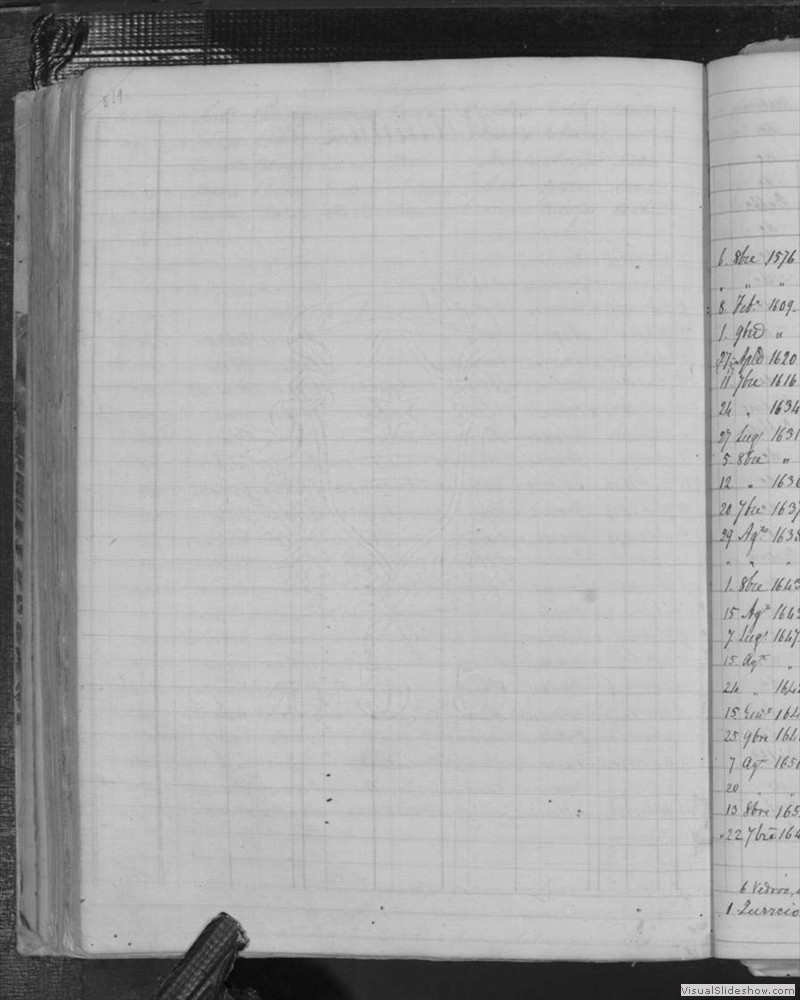 6. 8bre 1576
" " "
8 Feb.º 1609.
1. 9bre "
27 Aple 1620
11 7bre 1616
24 " 1634
27 Lug! 1631
5 8bre "
12 " 1636
20 7bre 1637
29 Ag.to 1638
" " "
1. 8bre 1643
15 Ag.to 1643
7 Lug! 1647
15 Ag.to "
24 " 164
15 Gen.º 164
25 9bre 164
7 Ag.to 165
20 " "
13 8bre 165
22 7bre 164
6
1
VisualSlideshow.com